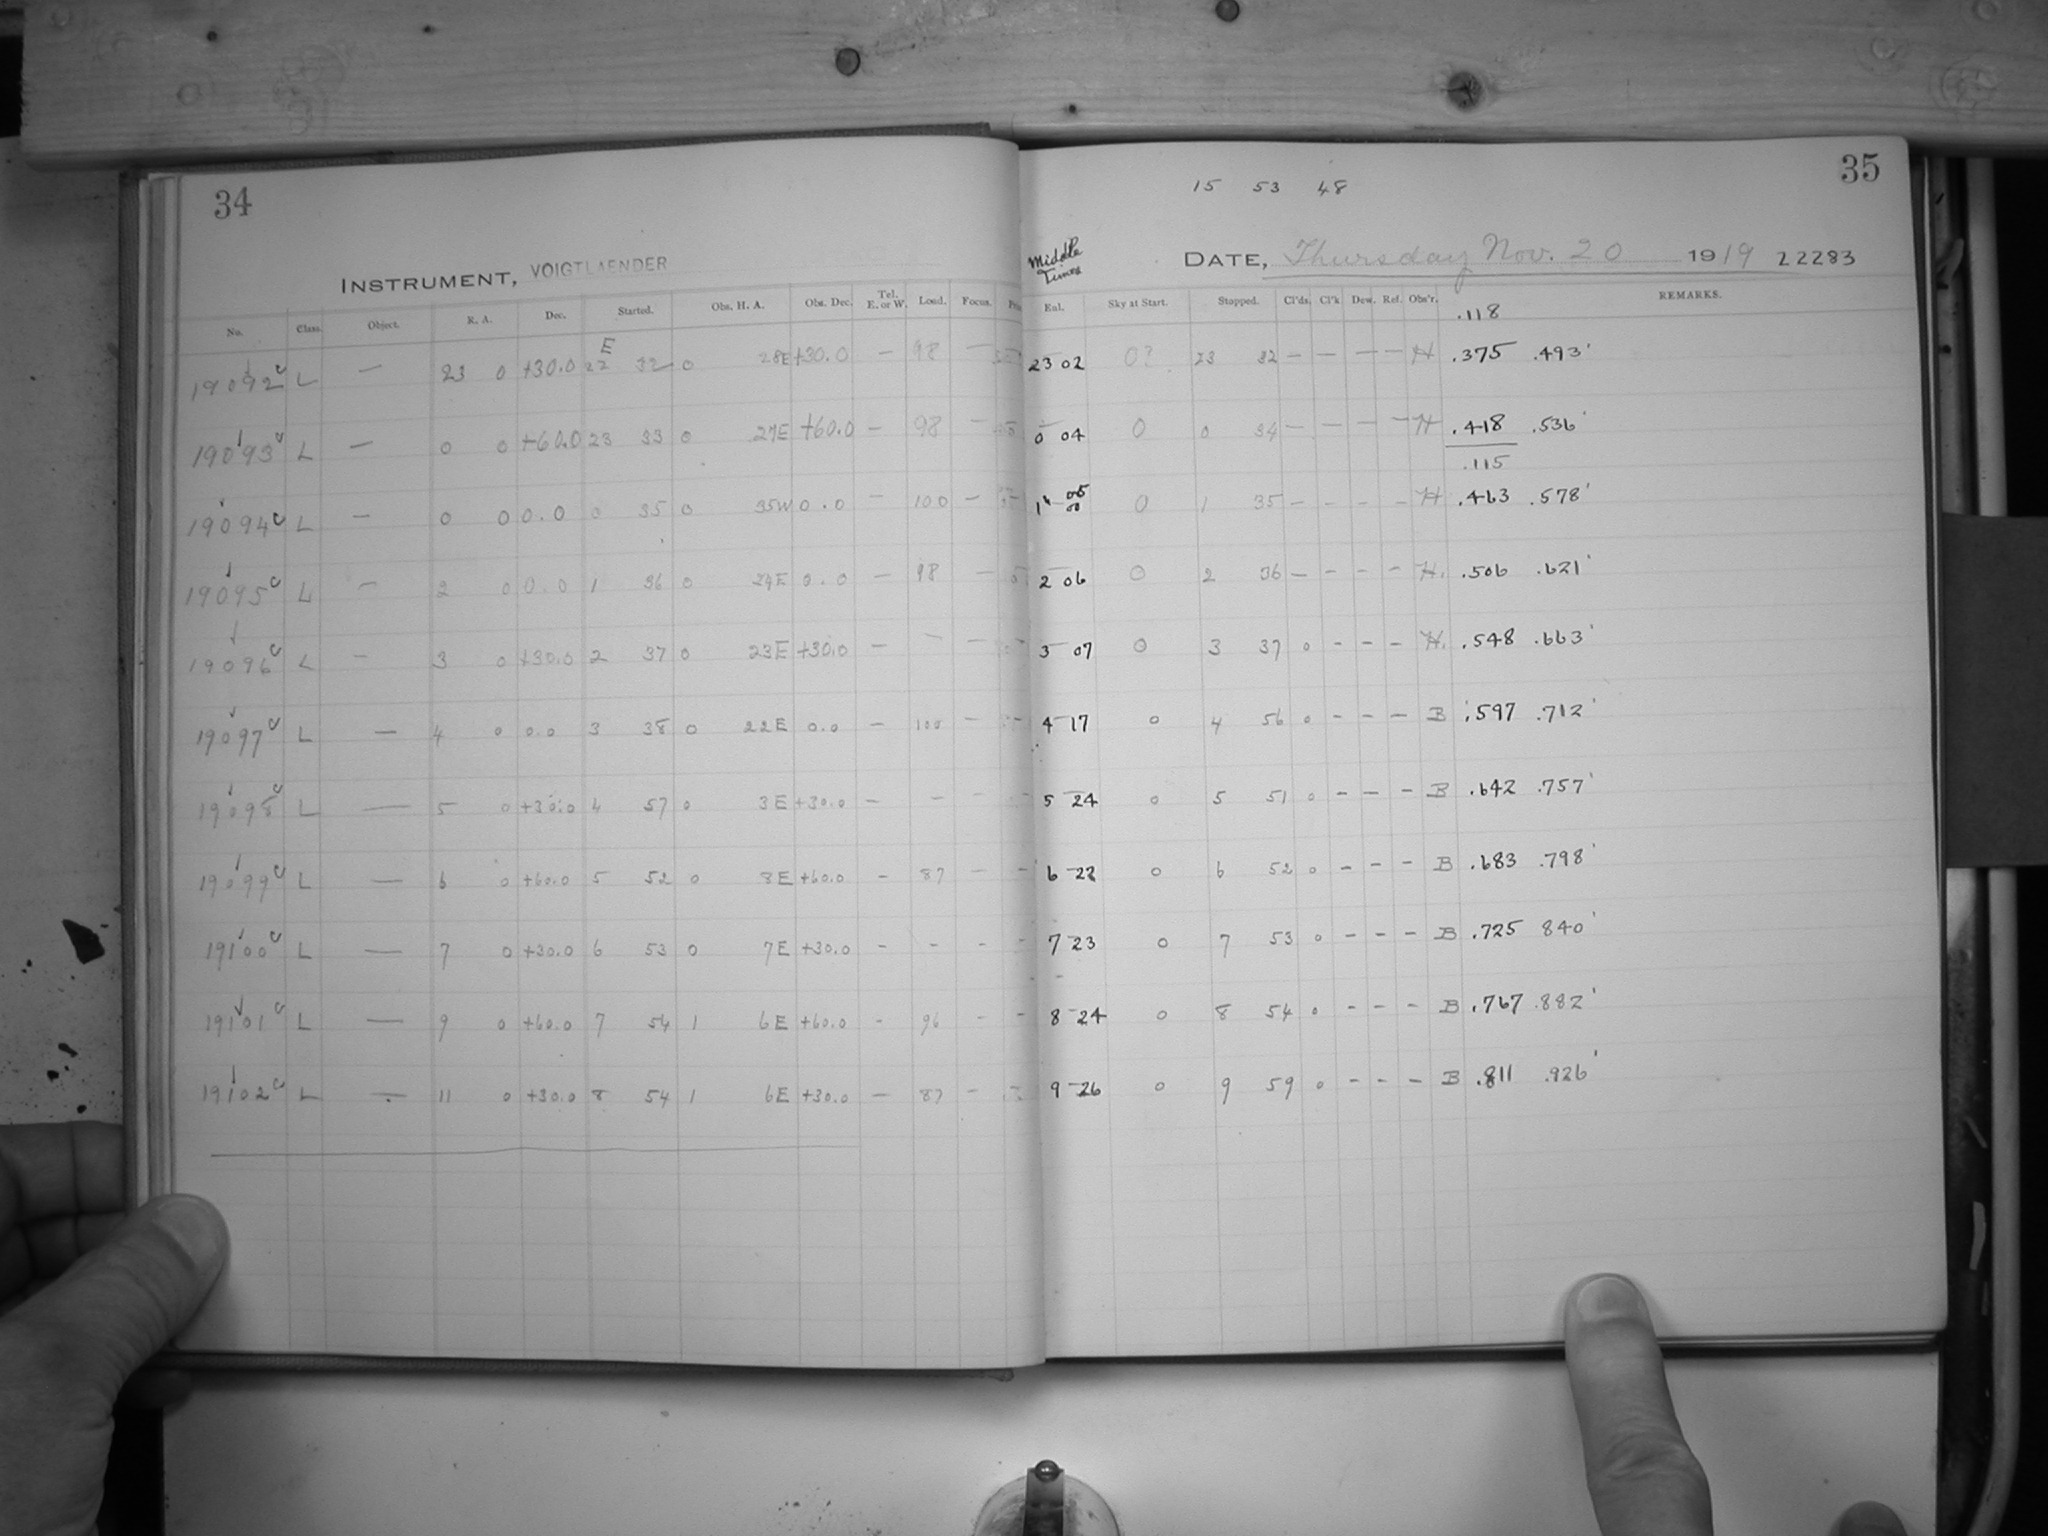 34
INSTRUMENT, VOIGTLAENDER
No. Class. Object. R. A. Dec. Started. Obs. H. A. Obs. Dec. Tel. E. or W. Load. Focus.
E
19092 L — 23 0 +30.0 22 32 0 28E +30.0 — 98 —
19093 L — 0 0 +60.0 23 33 0 27E +60.0 — 98 —
19094 L — 0 0 0.0 0 35 0 35W 0.0 — 100 —
19095 L — 2 0 0.0 1 36 0 24E 0.0 — 98 —
19096 L — 3 0 +30.0 2 37 0 23E +30.0 — — —
19097 L — 4 0 0.0 3 38 0 22E 0.0 — 100 —
19098 L — 5 0 +30.0 4 57 0 3E +30.0 — — —
19099 L — 6 0 +60.0 5 52 0 8E +60.0 — 87 —
19100 L — 7 0 +30.0 6 53 0 7E +30.0 — — —
19101 L — 9 0 +60.0 7 54 1 6E +60.0 — 96 —
19102 L — 11 0 +30.0 8 54 1 6E +30.0 — 87 —
35
15 53 48
Middle Times
DATE, Thursday Nov. 20 1919 22283
Enl. Sky at Start. Stopped. Cl'ds. Cl'k Dew. Ref. Obs'r. REMARKS.
.118
23 02 0? 23 32 — — — — H .375 .493
0 04 0 0 34 — — — — H .418 .536
.115
1 05 0 1 35 — — — — H .463 .578
2 06 0 2 36 — — — — H. .506 .621
3 07 0 3 37 0 — — — H. .548 .663
4 17 0 4 56 0 — — — B .597 .712
5 24 0 5 51 0 — — — B .642 .757
6 22 0 6 52 0 — — — B .683 .798
7 23 0 7 53 0 — — — B .725 840
8 24 0 8 54 0 — — — B .767 .882
9 26 0 9 59 0 — — — B .811 .926